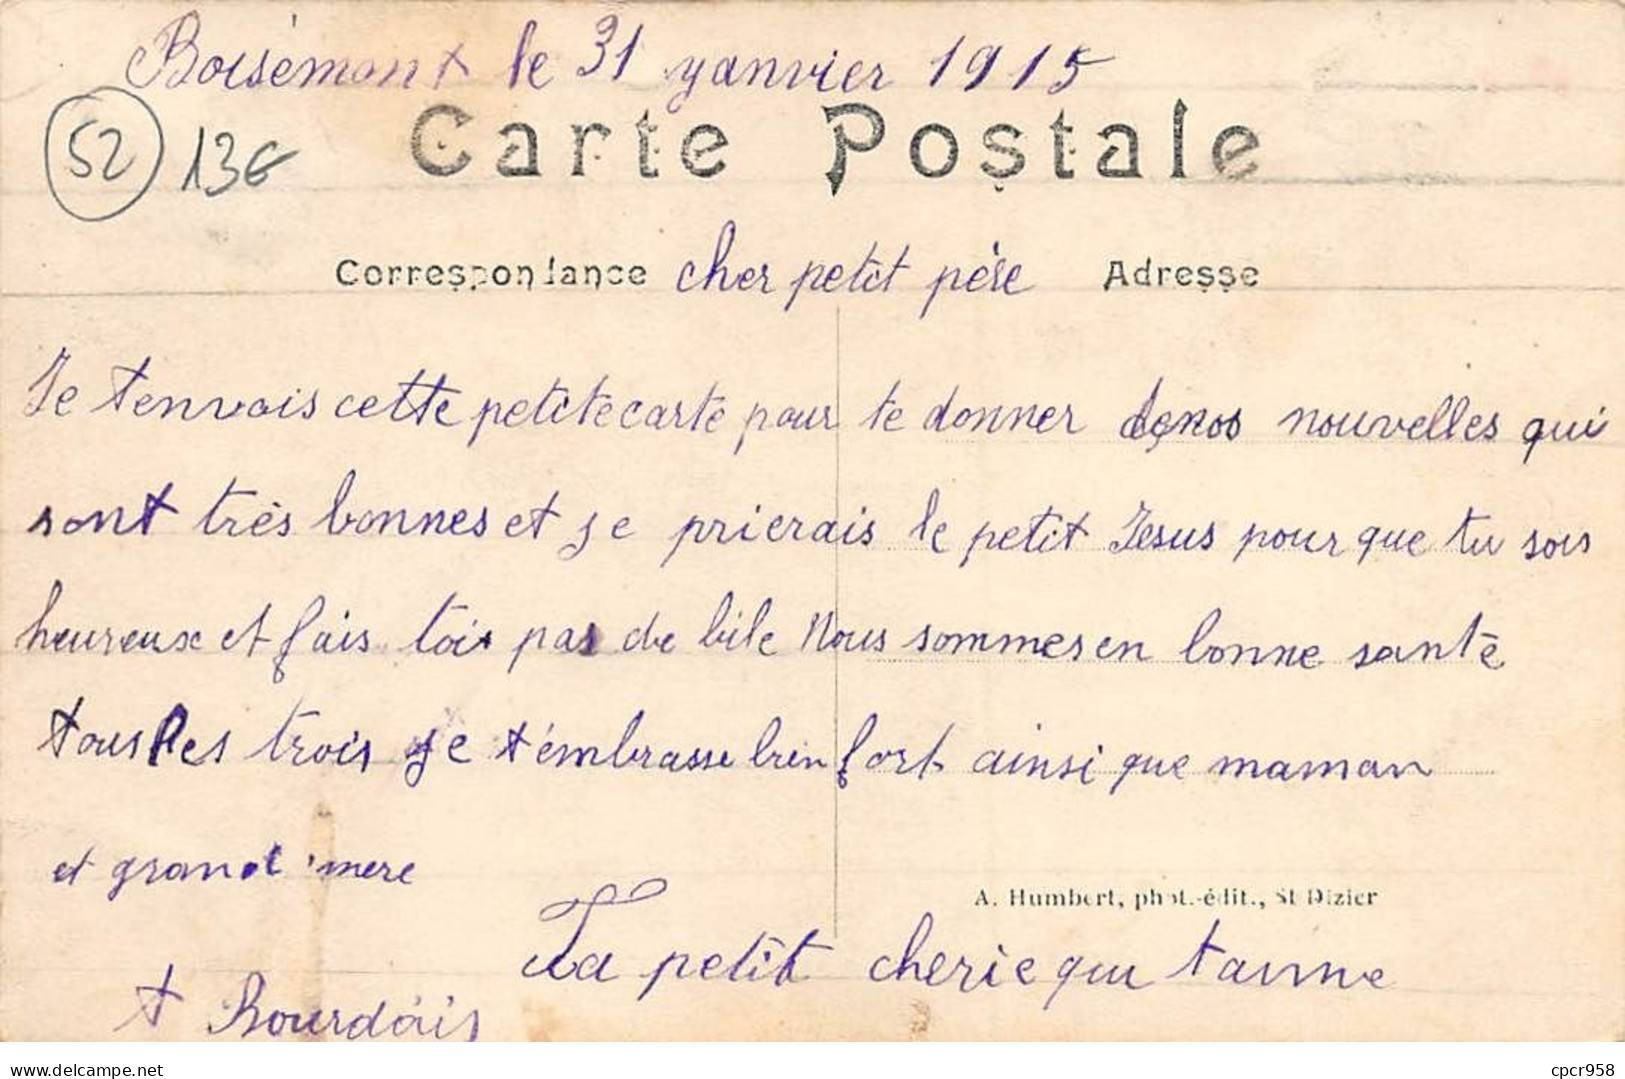 Boisémont le 31 yanvier 1915
52 13€
Carte Postale
Correspondance cher petit père Adresse
Je tenvois cette petite carte pour te donner de nos nouvelles qui
sont très bonnes et je prierais le petit Jesus pour que tu sois
heureux et fais tois pas de bile Nous sommes en bonne santé
tous les trois je t'émbrasse bien fort ainsi que maman
et grand'mere
A. Humbert, phot.-édit., St Dizier
Ta petit cherie qui taime
Bourdais
delcampe.net
cpcr958